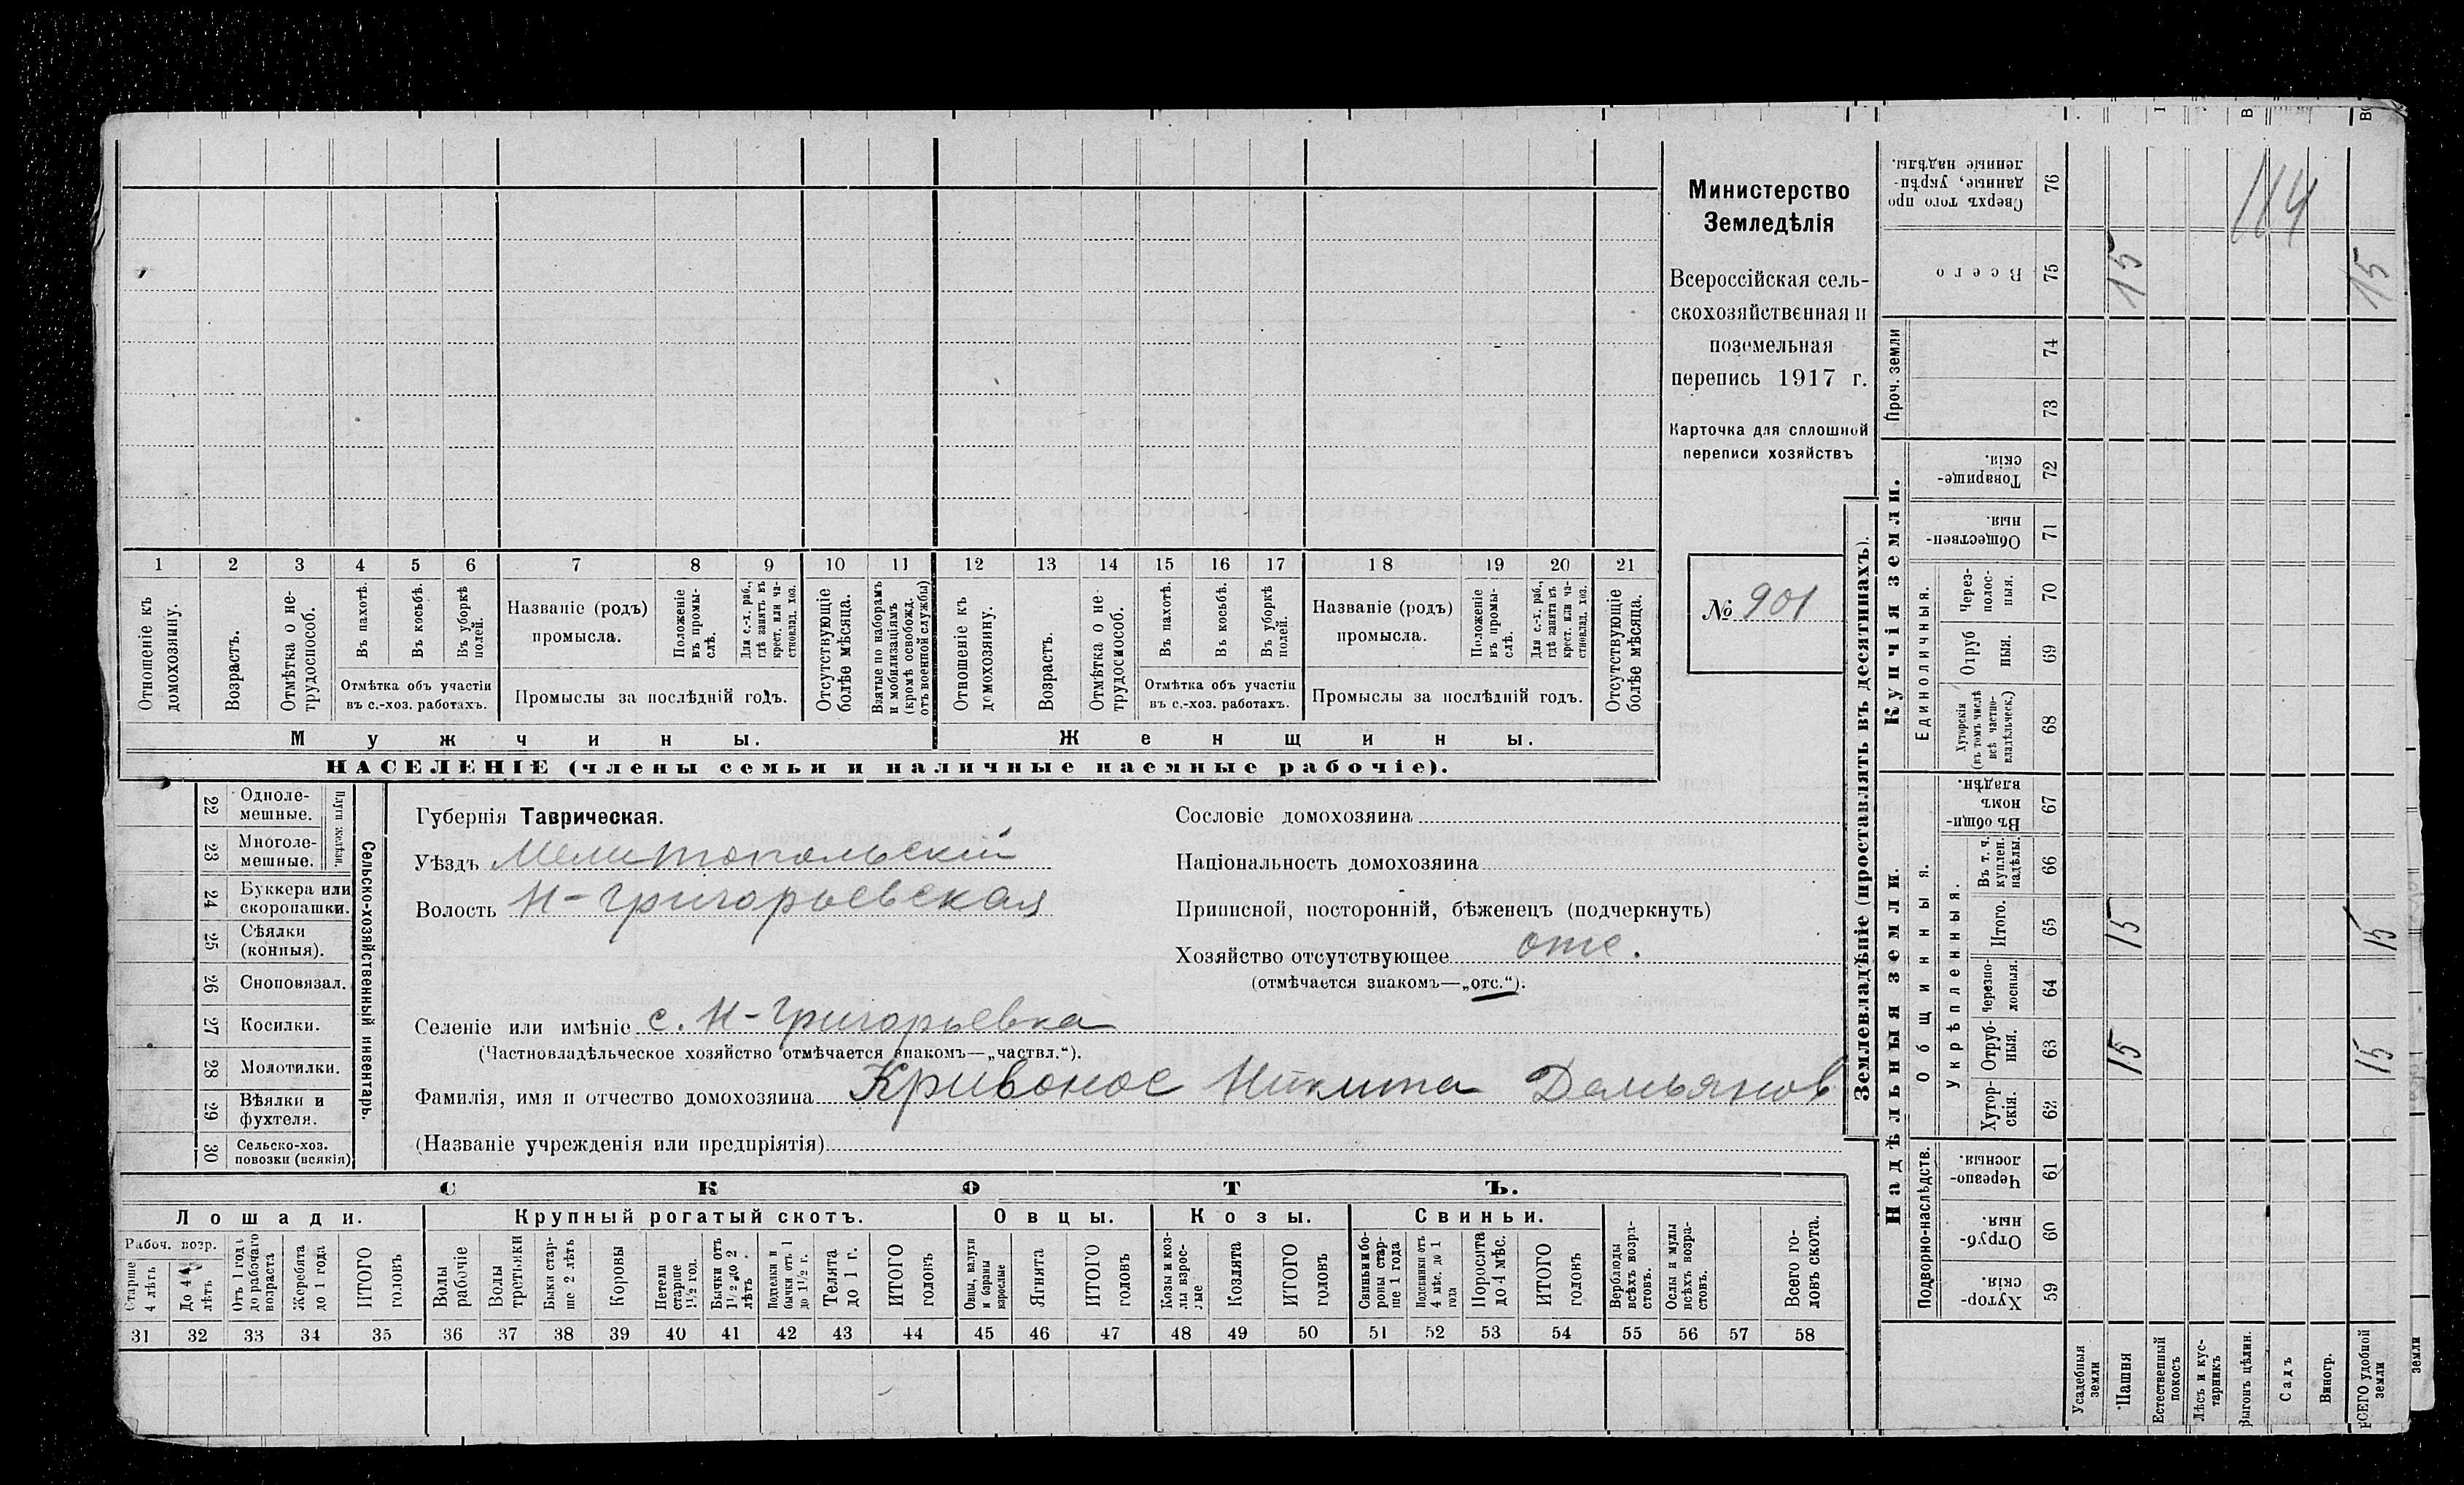 Министерство
Земледѣлія
Всероссійская сель-
скохозяйственная и
поземельная
перепись 1917 г.
Карточка для сплошной
переписи хозяйствъ
№ 901
1 2 3 4 5 6 7 8 9 10 11 12 13 14 15 16 17 18 19 20 21
Отношеніе къ домохозяину.
Возрастъ.
Отмѣтка о не-трудоспособ.
Въ пахотѣ.
Въ косьбѣ.
Въ уборкѣ полей.
Отмѣтка объ участіи
въ с.-хоз. работахъ.
Названіе (родъ)
промысла.
Положеніе въ промы-слѣ.
Для с.-х. раб., гдѣ занятъ въ крест. или ча-стновлад. хоз.
Промыслы за послѣдній годъ.
Отсутствующіе болѣе мѣсяца.
Взятые по наборамъ и мобилизаціямъ (кромѣ освобожд. отъ военной службы)
Отношеніе къ домохозяину.
Возрастъ.
Отмѣтка о не-трудоспособ.
Въ пахотѣ.
Въ косьбѣ.
Въ уборкѣ полей.
Отмѣтка объ участіи
въ с.-хоз. работахъ.
Названіе (родъ)
промысла.
Положеніе въ промы-слѣ.
Для с.-х. раб., гдѣ занята въ крест. или ча-стновлад. хоз.
Промыслы за послѣдній годъ.
Отсутствующіе болѣе мѣсяца.
Мужчины.
Женщины.
НАСЕЛЕНІЕ (члены семьи и наличные наемные рабочіе).
22 Одноле-мешные.
23 Многоле-мешные.
24 Буккера или скоропашки.
25 Сѣялки (конныя).
26 Сноповязал.
27 Косилки.
28 Молотилки.
29 Вѣялки и фухтеля.
30 Сельско-хоз. повозки (всякія)
Сельско-хозяйственный инвентарь.
Губернія Таврическая.
Уѣздъ Мелитопольскій
Волость Н-Григорьевская
Сословіе домохозяина
Національность домохозяина
Приписной, посторонній, бѣженецъ (подчеркнуть)
Хозяйство отсутствующее отс.
(отмѣчается знакомъ—„отс.“).
Селеніе или имѣніе с. Н-Григорьевка
(Частновладѣльческое хозяйство отмѣчается знакомъ—„частвл.“).
Фамилія, имя и отчество домохозяина Кривонос Никита Демьянов
(Названіе учрежденія или предпріятія)
СКОТЪ.
Лошади.
Крупный рогатый скотъ.
Овцы.
Козы.
Свиньи.
Рабоч. возр.
Старше 4 лѣтъ
До 4 лѣтъ
Отъ 1 года до рабочаго возраста
Жеребята до 1 года
ИТОГО головъ
Волы рабочіе
Волы третьяки
Быки стар-ше 2 лѣтъ
Коровы
Нетели старше 1½ год.
Бычки отъ 1½ до 2 лѣтъ
Подтелки и бычки отъ 1 до 1½ г.
Телята до 1 г.
ИТОГО головъ
Овцы, валухи и бараны взрослые
Ягнята
ИТОГО головъ
Козы и коз-лы взрос-лые
Козлята
ИТОГО головъ
Свиньи и бо-ровы стар-ше 1 года
Подсвинки отъ 4 мѣс. до 1 года
Поросята до 4 мѣс.
ИТОГО головъ
Верблюды всѣхъ возра-стовъ.
Ослы и мулы всѣхъ возра-стовъ.
Всего го-ловъ скота.
31 32 33 34 35 36 37 38 39 40 41 42 43 44 45 46 47 48 49 50 51 52 53 54 55 56 57 58
Землевладѣніе (проставлять въ десятинахъ).
Надѣльныя земли.
Купчія земли.
Проч. земли
Подворно-наслѣдств.
Общинныя.
Укрѣпленныя.
Единоличныя.
Сверхъ того про-данные, укрѣп-ленные надѣлы. 76
114
Всего 75 15 15
74
73
Товарище-скія. 72
Обществен-ныя. 71
Через-полос-ныя. 70
Отруб-ныя. 69
Хуторскія (въ томъ числѣ всѣ частно-владѣльческ.) 68
Въ общин-номъ владѣн. 67
Въ т. ч. куплен. надѣлы 66
Итого. 65 15 15
Черезпо-лосныя. 64
Отруб-ныя. 63 15 15
Хутор-скія. 62
Черезпо-лосныя. 61
Отруб-ныя. 60
Хутор-скія. 59
Усадебныя земли
Пашня
Естественный покосъ
Лѣсъ и кус-тарникъ
Выгонъ цѣлин.
Садъ
Виногр.
ВСЕГО удобной земли
земли